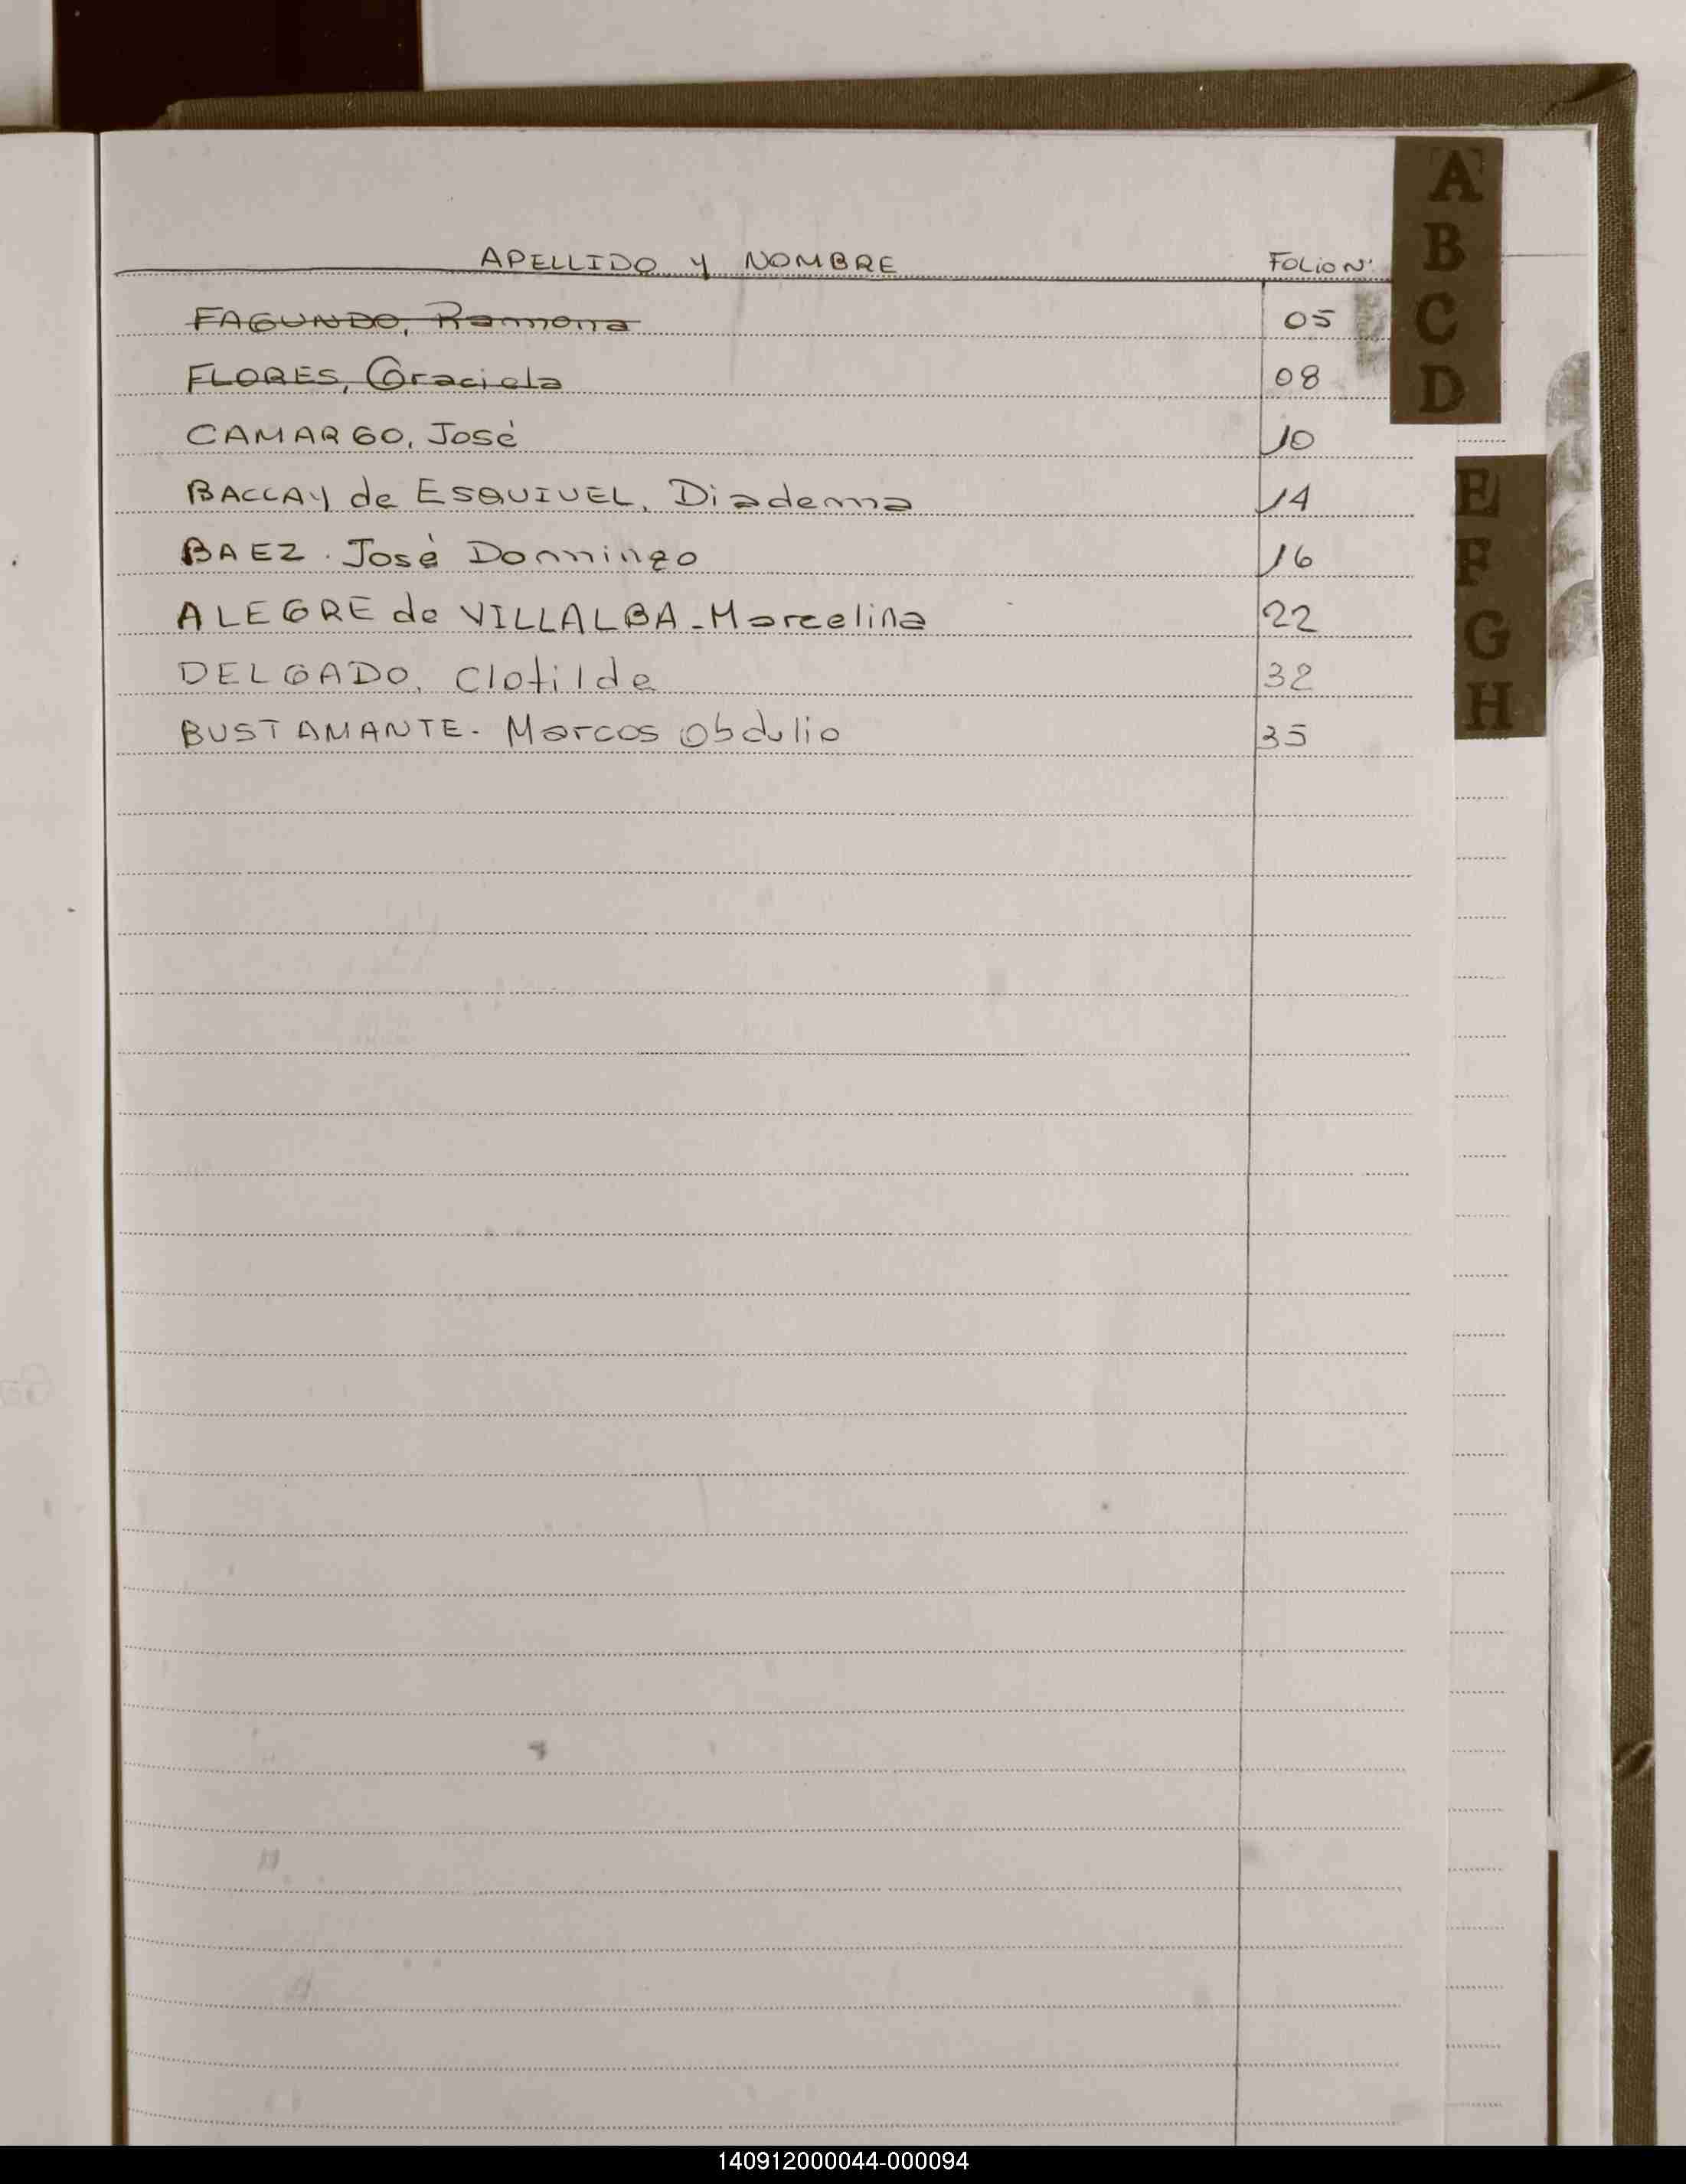 APELLIDO Y NOMBRE FOLIO Nº
FAGUNDO, Ramona 05
FLORES, Graciela 08
CAMARGO, José 10
BACCAY de ESQUIVEL, Diadema 14
BAEZ. José Domingo 16
ALEGRE de VILLALBA - Marcelina 22
DELGADO, Clotilde 32
BUSTAMANTE - Marcos Obdulio 35
A
B
C
D
E
F
G
H
140912000044-000094